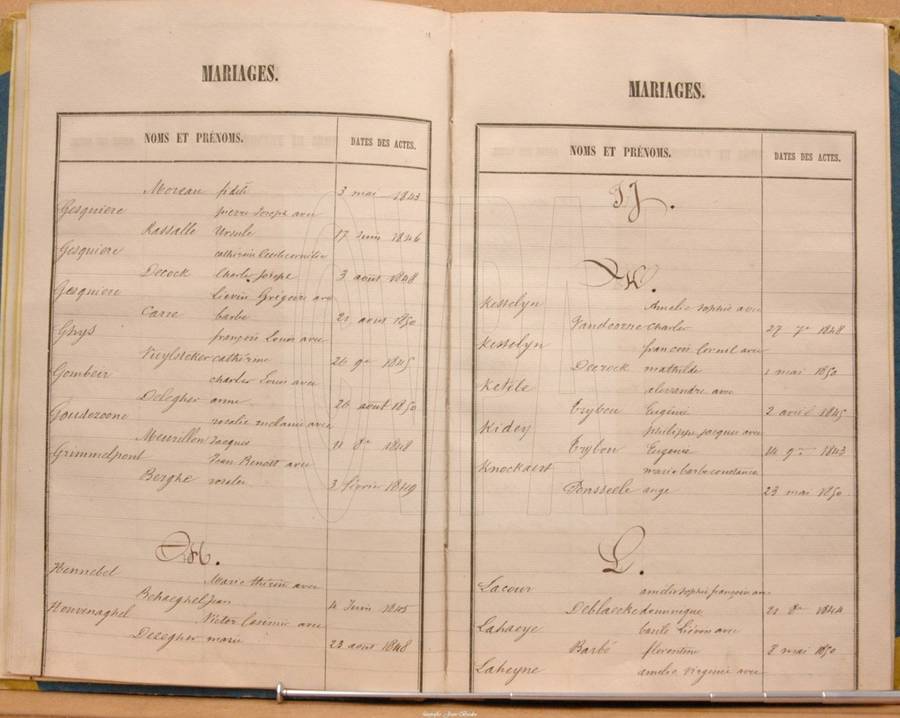 MARIAGES.
NOMS ET PRÉNOMS. DATES DES ACTES.
Moreau 3 mai 1843
Gesquiere pierre Joseph avec
Rassalle Ursule 17 Juin 1846
Gesquiere catherine
Decock Charles Joseph 3 aout 1848
Gesquiere Lievin Grégoire avec
Carre barbe 21 aout 1850
Ghys françois Louis avec
catherine 26 9re 1845
Gombeir charles Louis avec
Delegher anne 26 août 1850
Goudezoone rosalie melanie avec
Meurillon Jacques 11 8re 1848
Grimmelpont Jean Benoit avec
Berghe rosalie 3 février 1849
H.
Hennebel Marie thérèse avec
Behaeghel Jean 4 Juin 1845
Houvenaghel Victor Casimir avec
Desegher marie 23 aout 1848
MARIAGES.
NOMS ET PRÉNOMS. DATES DES ACTES.
IJ.
K.
Kesselyn Amelie Sophie avec
charles 27 7re 1848
Kesselyn francois Cornil avec
Decrock mathilde 1 mai 1850
Ketele alexandre avec
Trybou Eugénie 2 avril 1845
Kidey philippe jacques avec
Trybou Eugenie 14 9re 1843
Knockaert marie barbe constance
Ponsseele ange 23 mai 1850
L.
Lacour amelie sophie françoise
Deblaecke dominique 21 8re 1844
Lahaeye basile Liévin avec
Barbé florentine 2 mai 1850
Laheyne amelie virginie avec